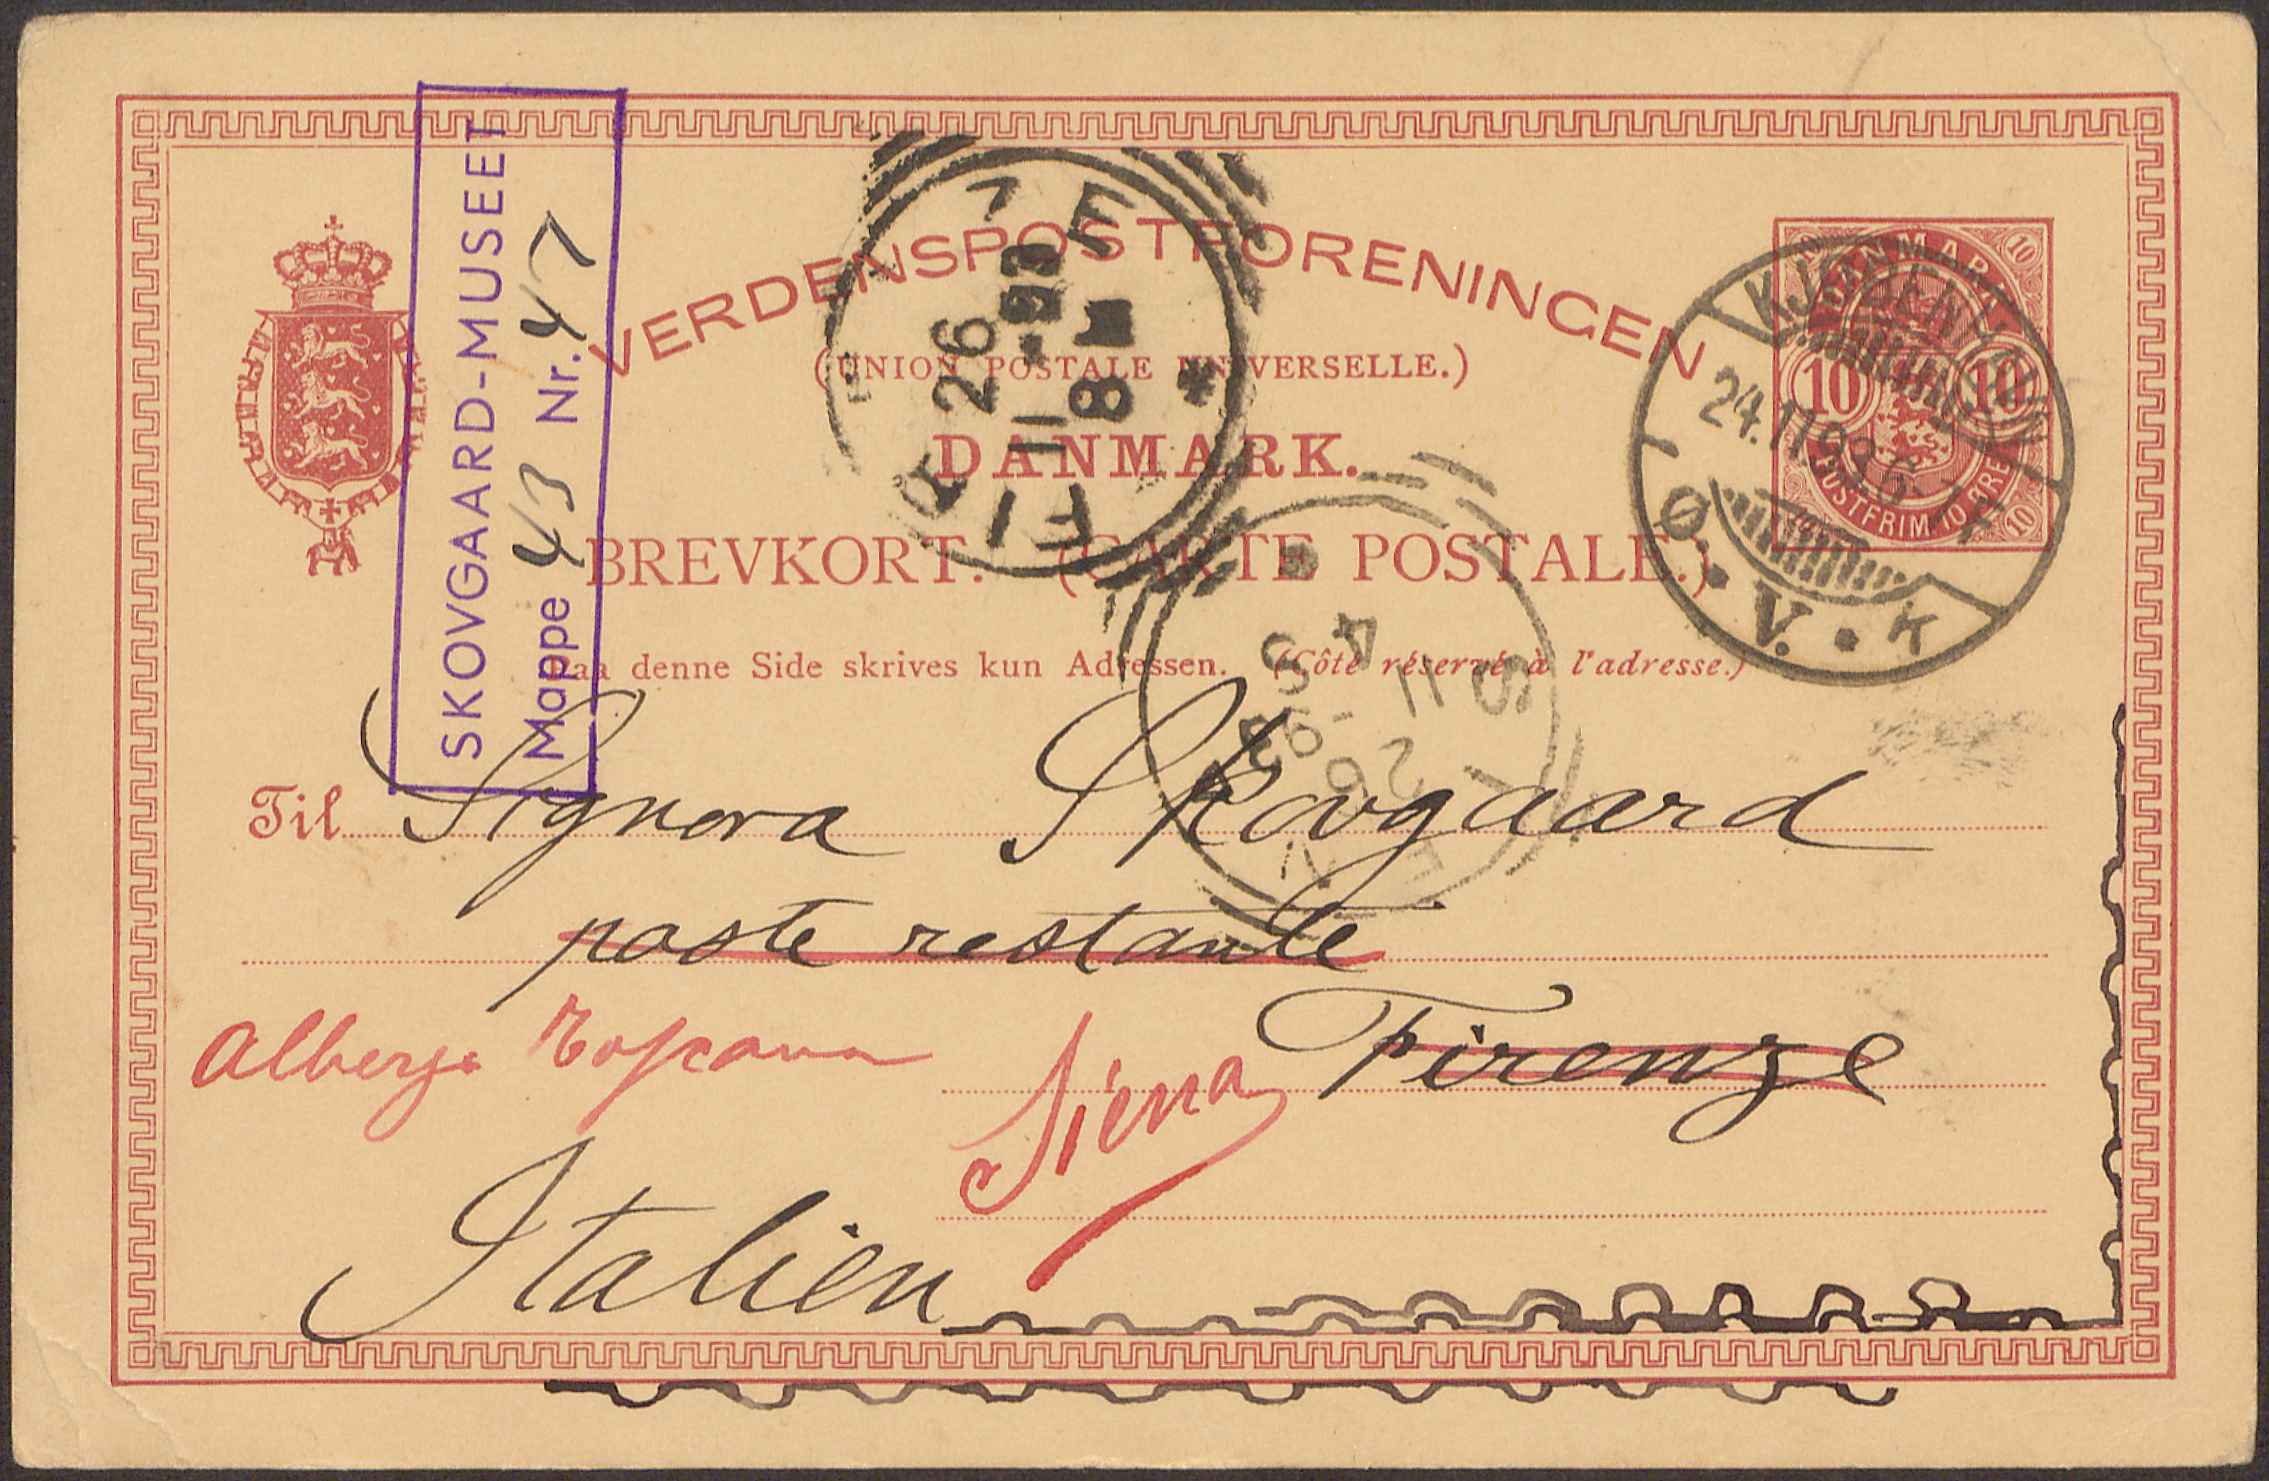 SKOVGAARD-MUSEET
Mappe 43 Nr. 47
VERDENSPOSTFORENINGEN
(UNION POSTALE UNIVERSELLE.)
DANMARK.
BREVKORT. (CARTE POSTALE.)
Paa denne Side skrives kun Adressen. (Côté réservé à l'adresse.)
DANMARK
10 10
POSTFRIM. 10 ØRE
KJØBENHAVN
24.11.93.6-
Ø. V. K
FIRENZE
26
11-93
8 M
26
11-93
4 S
Til Signora Skovgaard
poste restante
Firenze
Albergo Toscana
Siena
Italien